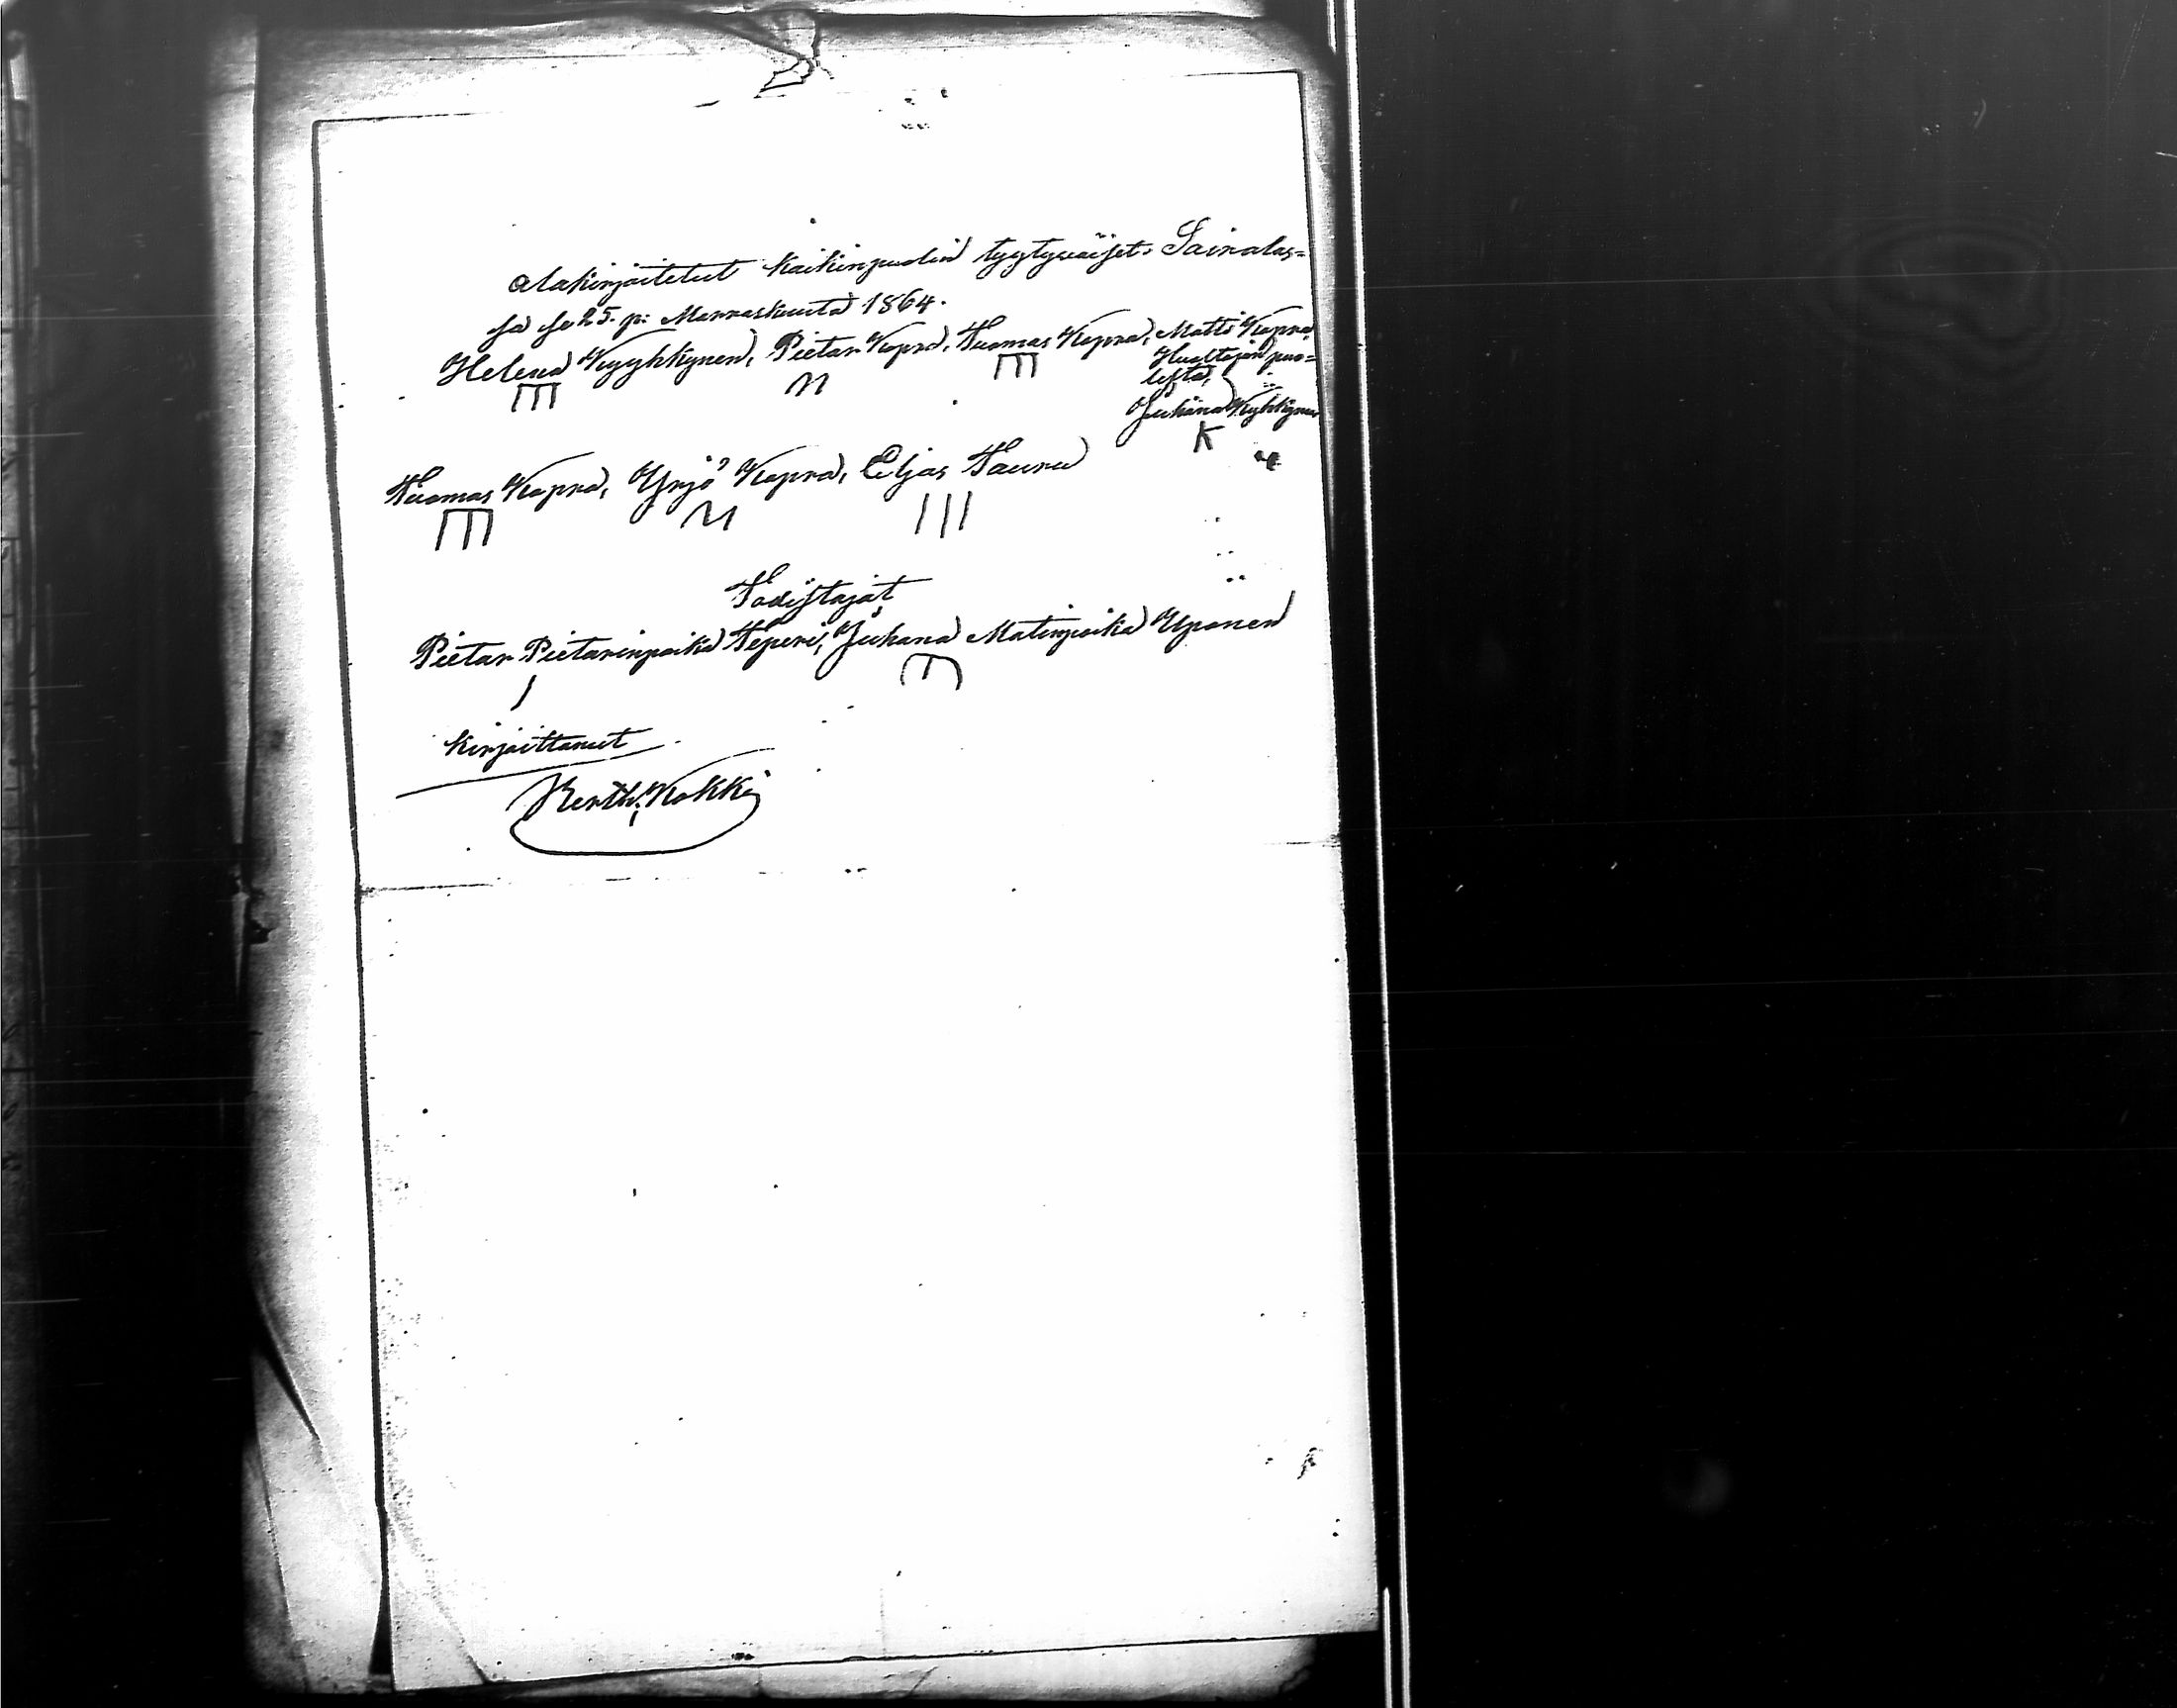 allakirjoitetut kaikinpuolin tyytywäiset. Sairalas=
sa se 25. p: Marraskuuta 1864.
Helena Kyyhkynen, Pietar Kopra, Tuomas Kopra, Matti Kopra,
Huoltajan puo=
lesta,
Juhana Kyhkynen
K
Tuomas Kopra, Yrjö Kopra, Eljas Tauru
III
Todistajat
Pietar Pietarinpoika Teperi, Juhana Matinpoika Uponen
kirjoittanut
Kokki